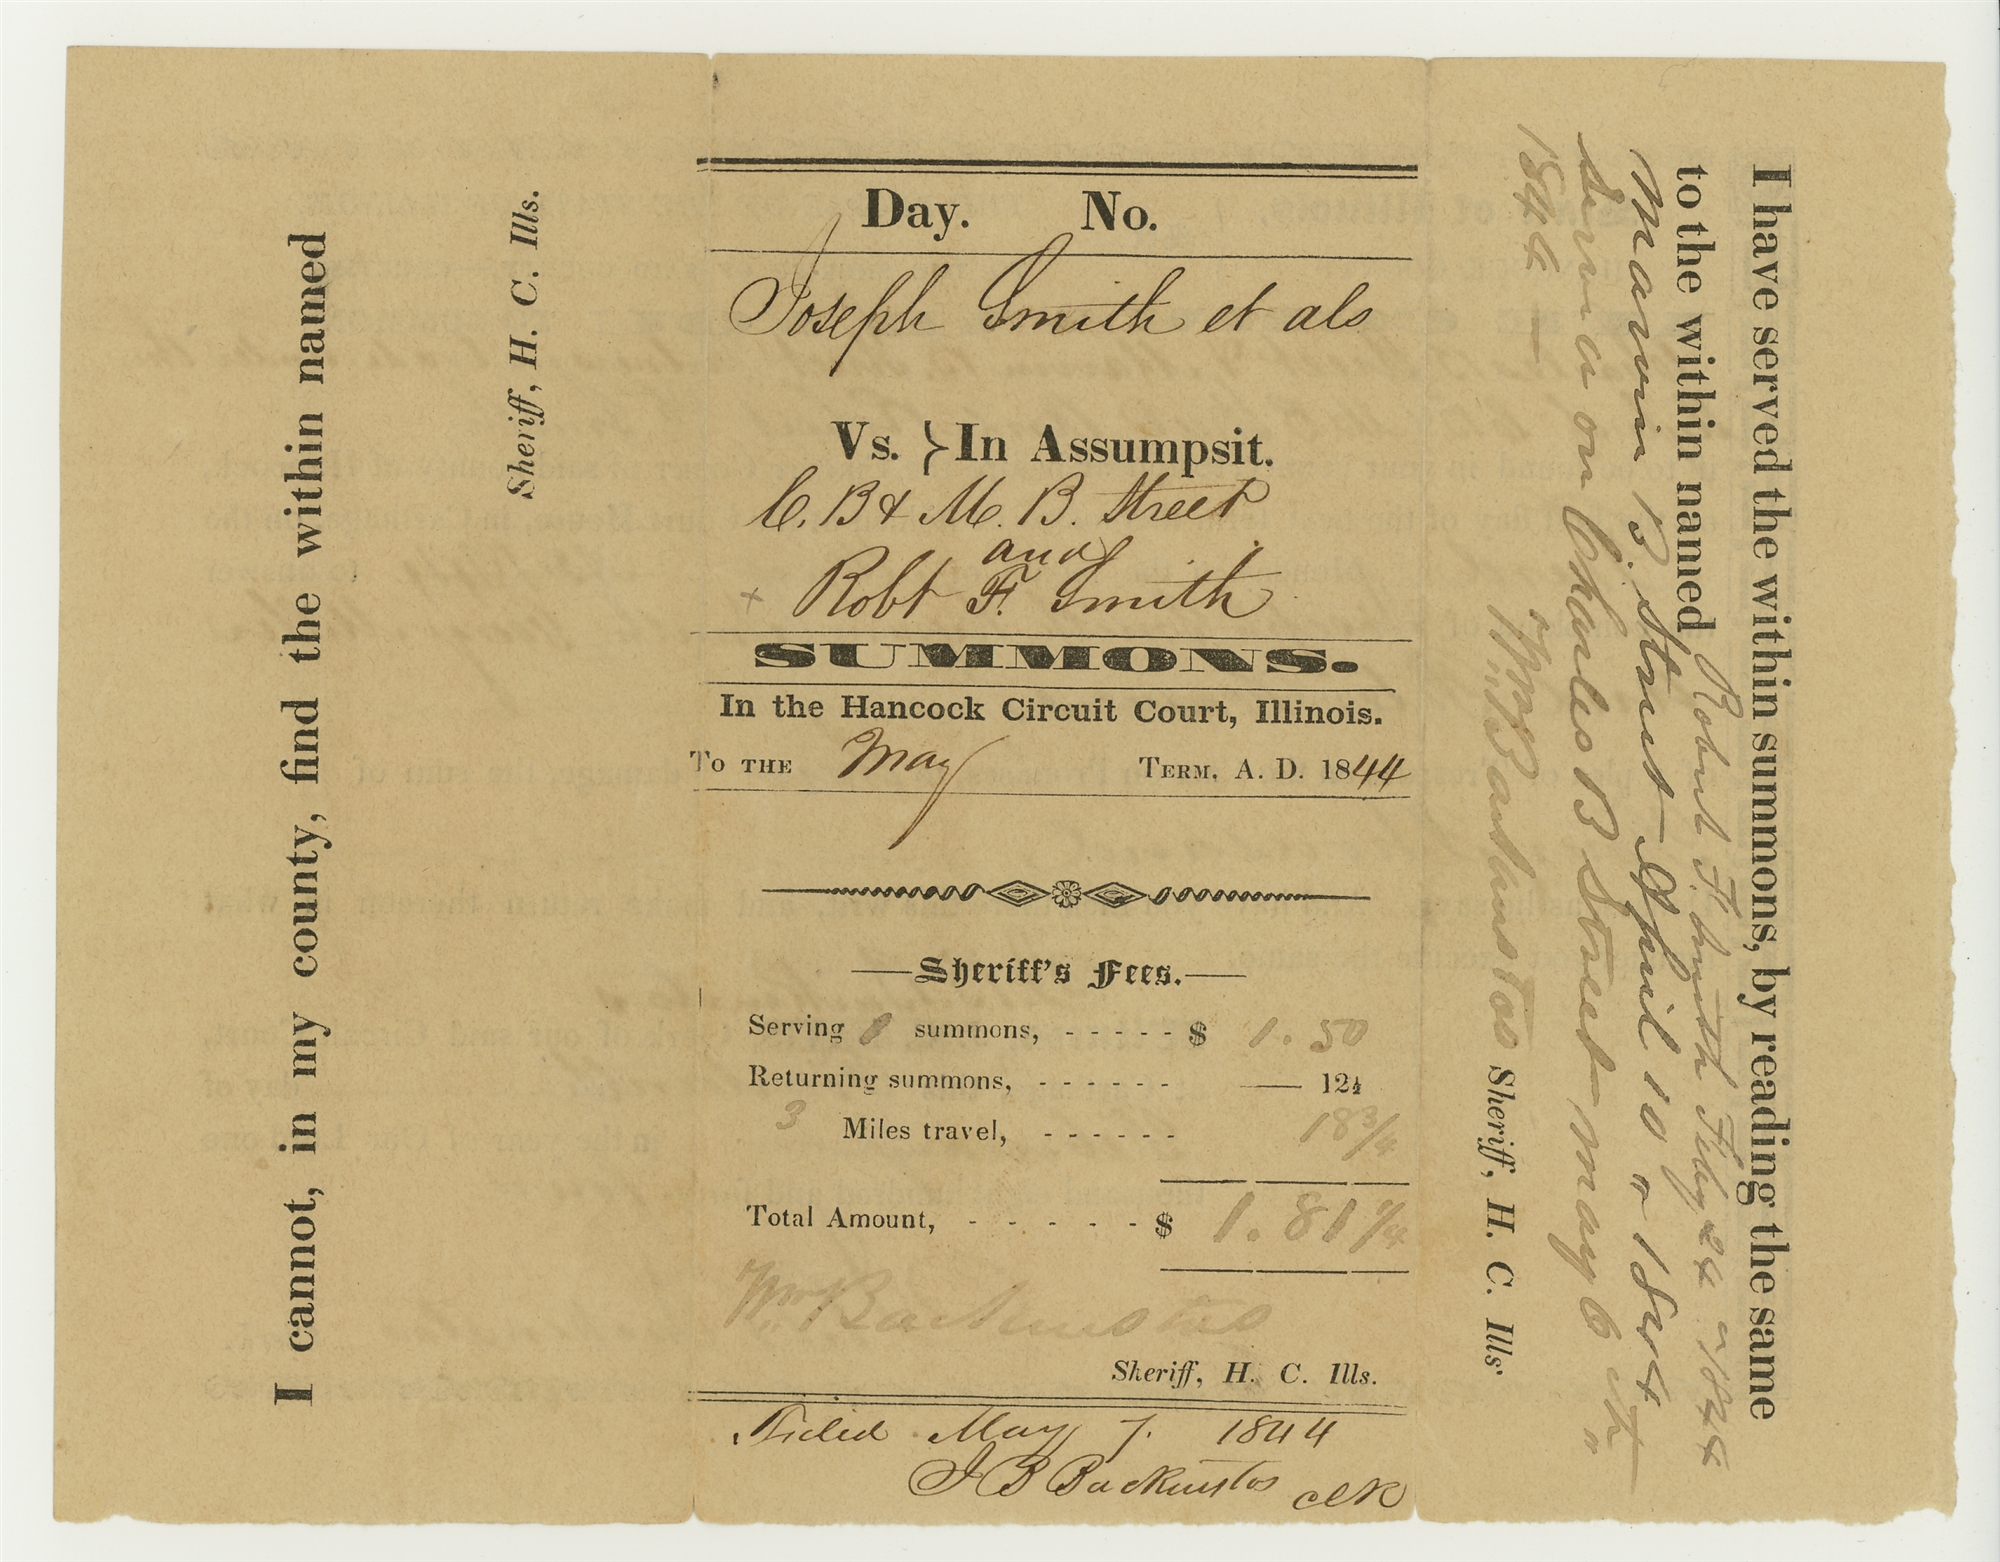 I cannot, in my county, find the within named
Sheriff, H. C. Ills.
Day. No.
Joseph Smith et als
Vs. } In Assumpsit.
C. B & M. B. Street
and
x Robt F. Smith
SUMMONS.
In the Hancock Circuit Court, Illinois.
To the May Term, A. D. 1844
Sheriff's Fees.
Serving summons, - - - - - $ 1.50
Returning summons, - - - - - - 12½
3 Miles travel, - - - - - - 18¾
Total Amount, - - - - - $ 1.81¼
Wm Backenstos
Sheriff, H. C. Ills.
Filed May 7. 1844
J B Backenstos clk
I have served the within summons, by reading the same
to the within named Robert F. Smith Feby 24 1844
Marvin B. Street April 10 " 1844
on Charles B Street May 6th "
1844 —
Wm Backenstos Sheriff, H. C. Ills.